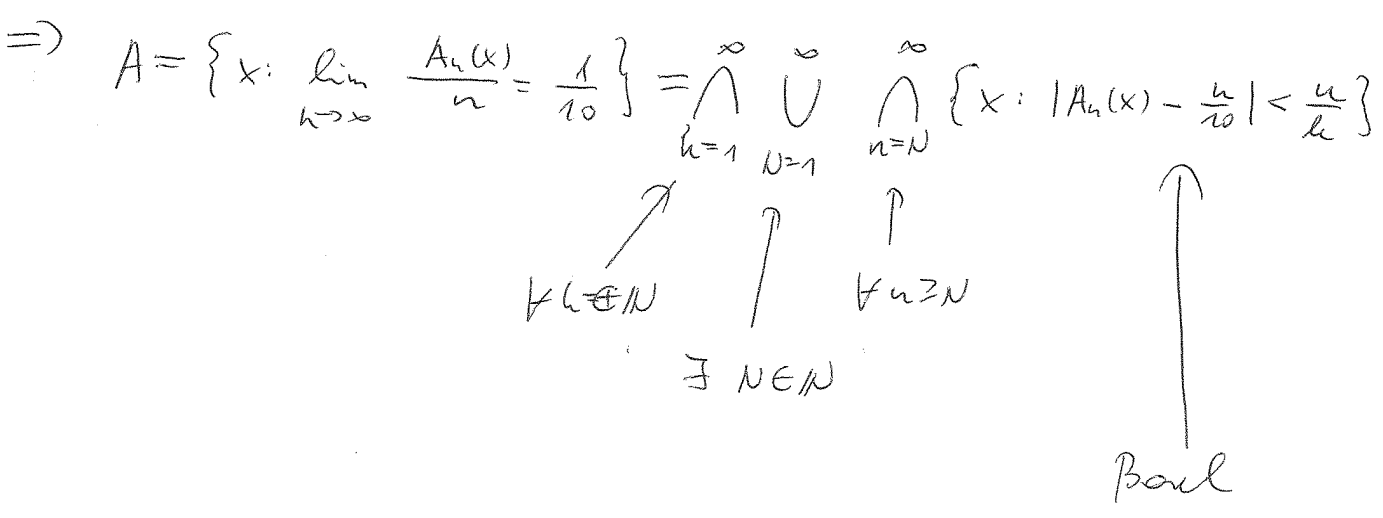 ⇒ A = {x: lim_{n→∞} A_n(x)/n = 1/10} = ⋂_{k=1}^{∞} ⋃_{N=1}^{∞} ⋂_{n=N}^{∞} {x: |A_n(x) − n/10| < n/k}
∀ k ∈ ℕ ∀ n ≥ N
∃ N ∈ ℕ
Borel